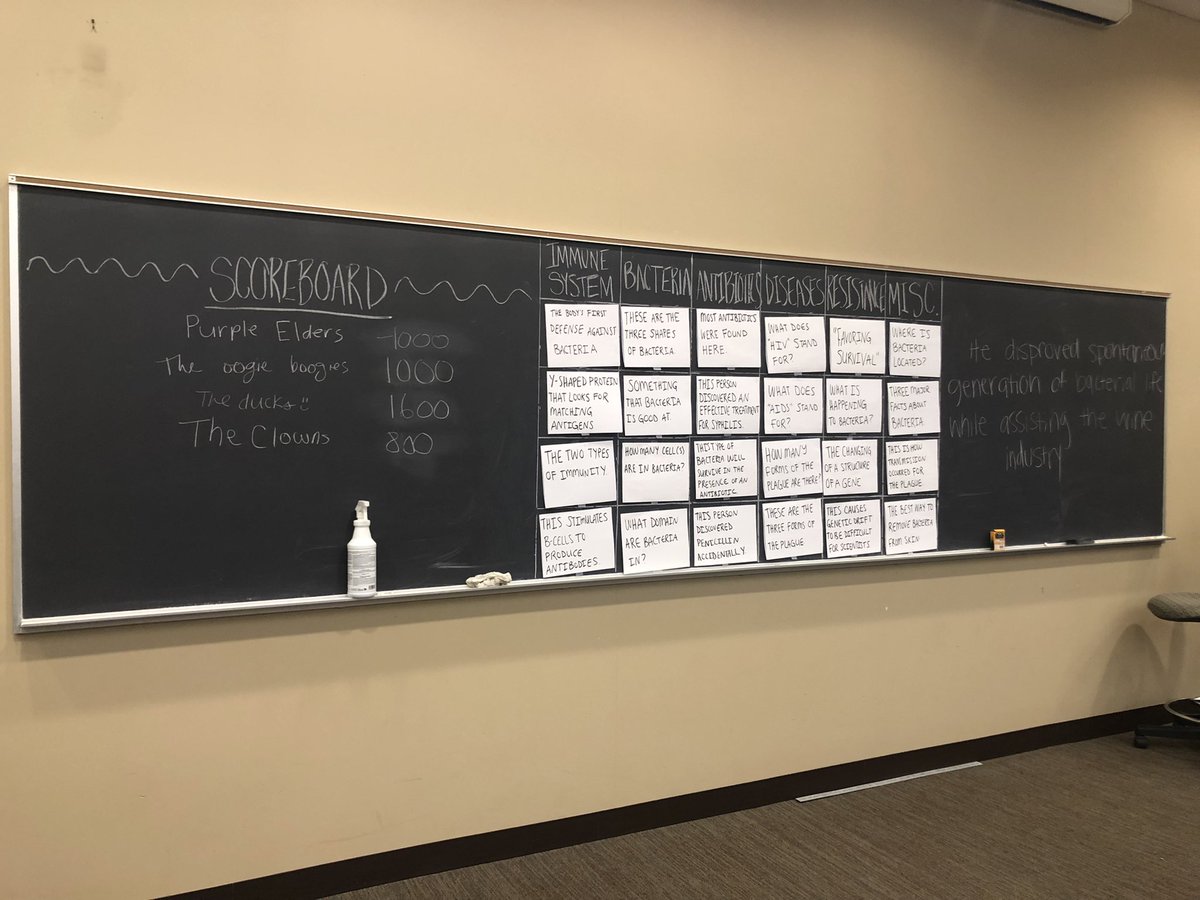 SCOREBOARD
Purple Elders 1000
The oogie boogies 1000
The ducks!! 1600
The Clowns 800
IMMUNE
SYSTEM
BACTERIA
ANTIBIOTICS
DISEASES
RESISTANCE
MISC.
THE BODY'S FIRST
DEFENSE AGAINST
BACTERIA
THESE ARE THE
THREE SHAPES
OF BACTERIA.
MOST ANTIBIOTICS
WERE FOUND
HERE.
WHAT DOES
"HIV" STAND
FOR?
"FAVORING
SURVIVAL"
WHERE IS
BACTERIA
LOCATED?
Y-SHAPED PROTEIN
THAT LOOKS FOR
MATCHING
ANTIGENS
SOMETHING
THAT BACTERIA
IS GOOD AT.
THIS PERSON
DISCOVERED AN
EFFECTIVE TREATMENT
FOR SYPHILIS.
WHAT DOES
"AIDS" STAND
FOR?
WHAT IS
HAPPENING
TO BACTERIA?
THREE MAJOR
FACTS ABOUT
BACTERIA
THE TWO TYPES
OF IMMUNITY
HOW MANY CELL(S)
ARE IN BACTERIA?
THIS TYPE OF
BACTERIA WILL
SURVIVE IN THE
PRESENCE OF AN
ANTIBIOTIC
HOW MANY
FORMS OF THE
PLAGUE ARE THERE?
THE CHANGING
OF A STRUCTURE
OF A GENE
THIS IS HOW
TRANSMISSION
OCCURRED FOR
THE PLAGUE
THIS STIMULATES
B-CELLS TO
PRODUCE
ANTIBODIES
WHAT DOMAIN
ARE BACTERIA
IN?
THIS PERSON
DISCOVERED
PENICILLIN
ACCIDENTALLY.
THESE ARE THE
THREE FORMS OF
THE PLAGUE
THIS CAUSES
GENETIC DRIFT
TO BE DIFFICULT
FOR SCIENTISTS
THE BEST WAY TO
REMOVE BACTERIA
FROM SKIN
He disproved spontaneous
generation of bacterial life
while assisting the wine
industry